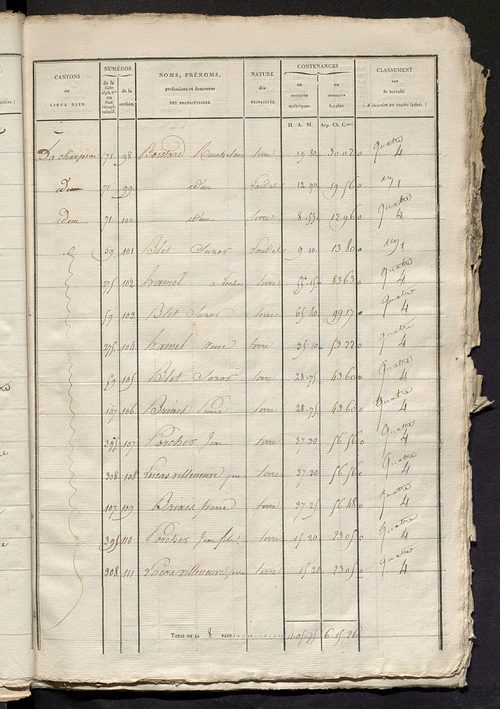 CANTONS ou LIEUX DITS. NUMÉROS de la liste alphab.que ou état récapitulatif. de la section. NOMS, PRÉNOMS, professions et demeures DES PROPRIÉTAIRES. NATURE des PROPRIÉTÉS. CONTENANCES en mesures métriques. en mesures locales. CLASSEMENT sur le terrain. (À inscrire en toutes lettres.)
H. A. M. Arp. Ch. C.mes
71 98 terre 19 80 30 02 Quatre 4
idem 71 99 idem 12 90 19 56 1
idem 71 100 idem terre 8 55 12 96 quatre 4
59 101 Blot 9 10 13 80 1
375 102 hamel terre 55 15 83 63 quatre 4
59 103 Blot terre 65 40 99 17 quatre 4
375 104 hamel terre 35 10 53 22 quatre 4
59 105 Blot terre 28 75 43 60 quatre 4
107 106 Briais Pierre terre 28 75 43 60 quatre 4
395 107 Porcher Jean terre 37 30 56 56 quatre 4
308 108 Lucas villeneuve terre 37 30 56 56 Quatre 4
107 109 Briais pierre terre 37 25 56 48 quatre 4
395 110 Porcher Jean fils terre 15 20 23 05 Quatre 4
308 111 Lucas villeneuve terre 15 20 23 05 quatre 4
TOTAL DE LA 8 PAGE 4 05 75 6 15 26